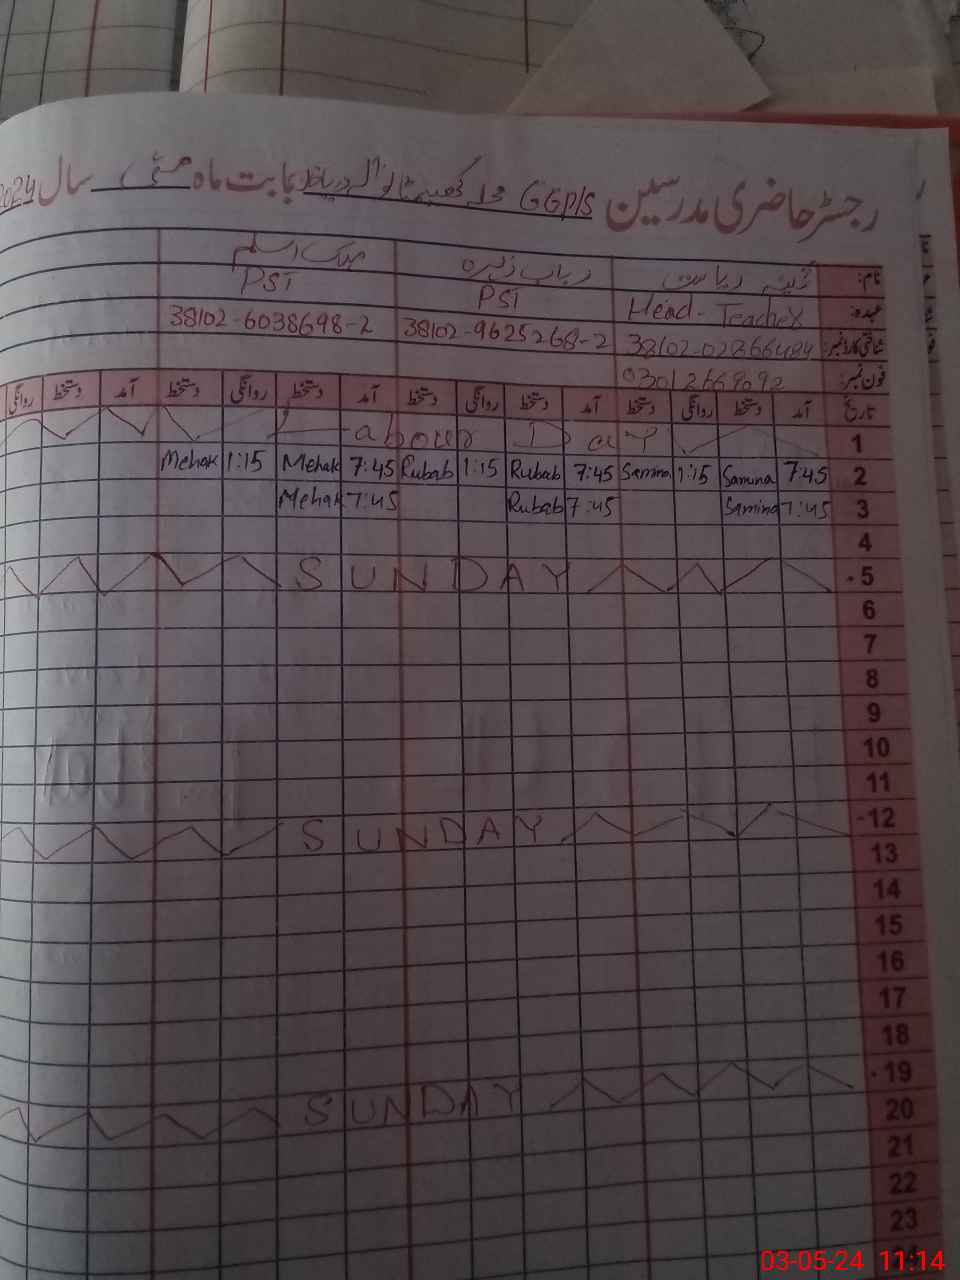 رجسٹر حاضری مدرسین GGP/S محلہ بابت ماہ مئی سال 2024
نام: ثمینہ ریاست رباب زہرہ مہک اسلم
عہدہ: Head-Teacher PST PST
شناختی کارڈ نمبر: 38102-9625268-2 38102-6038698-2
فون نمبر:
تاریخ آمد دستخط روانگی دستخط آمد دستخط روانگی دستخط آمد دستخط روانگی دستخط آمد دستخط روانگی
1 Labour Day
2 7:45 Samina 1:15 Samina 7:45 Rubab 1:15 Rubab 7:45 Mehak 1:15 Mehak
3 7:45 Samina 7:45 Rubab 7:45 Mehak
4
5 SUNDAY
6
7
8
9
10
11
12 SUNDAY
13
14
15
16
17
18
19 SUNDAY
20
21
22
23
03-05-24 11:14